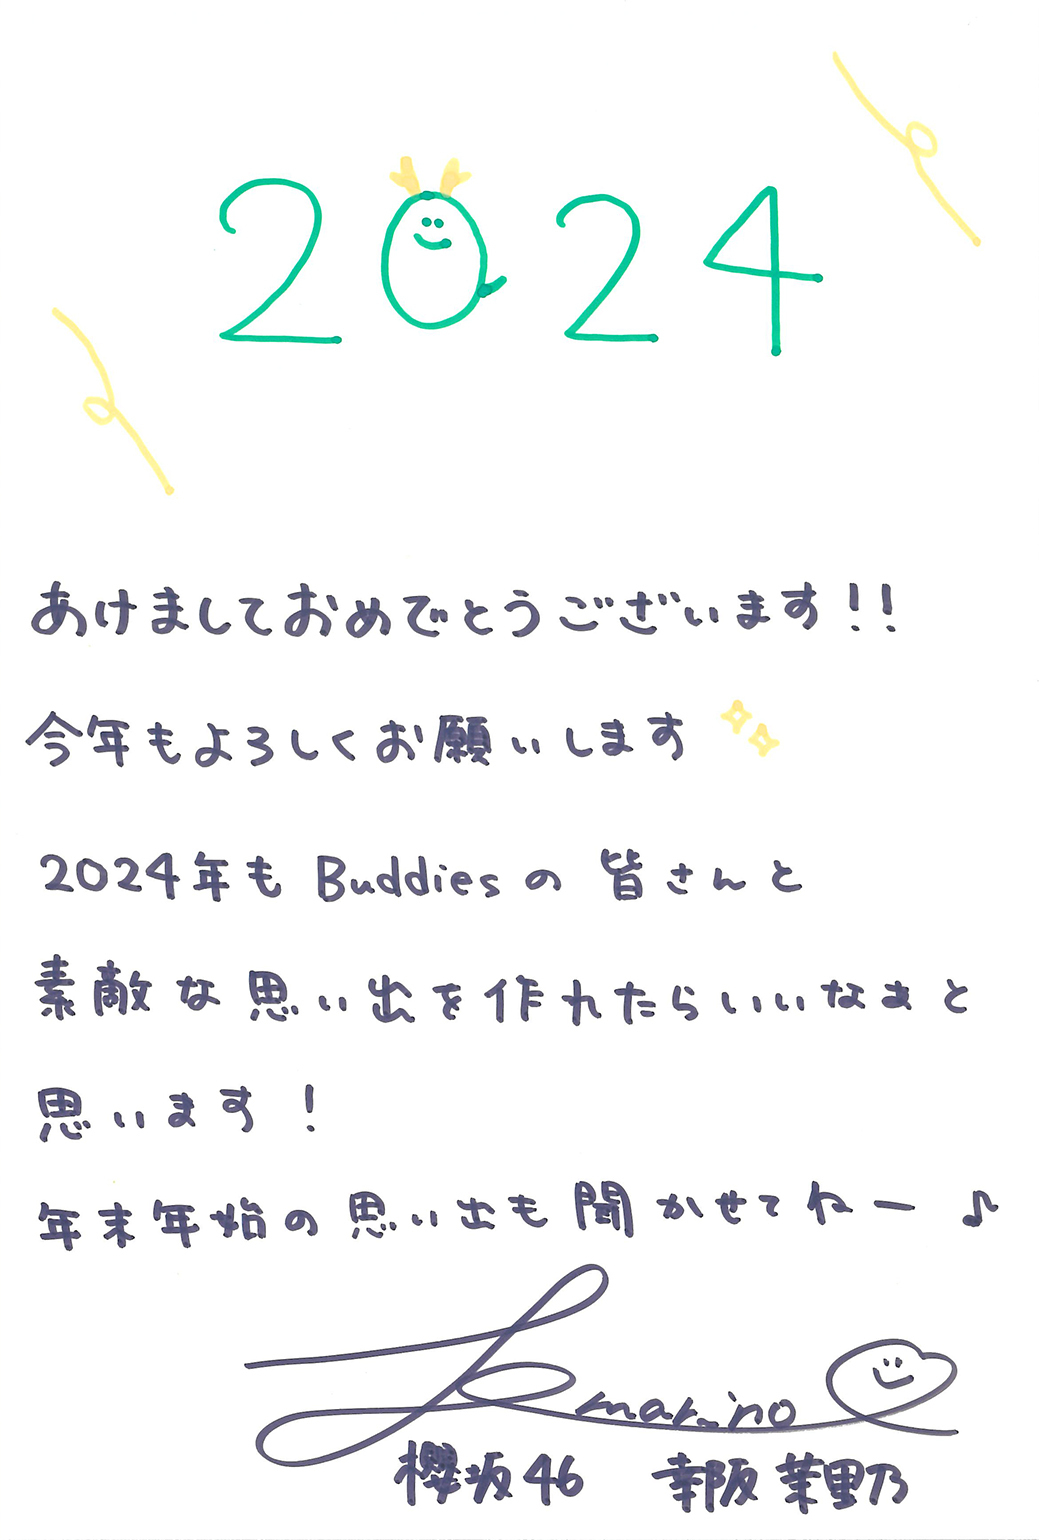 2024
あけましておめでとうございます!!
今年もよろしくお願いします
2024年も Buddiesの 皆さんと
素敵な思い出を作れたらいいなぁと
思います!
年末年始の思い出も聞かせてねー♪
marino
櫻坂46 幸阪茉里乃